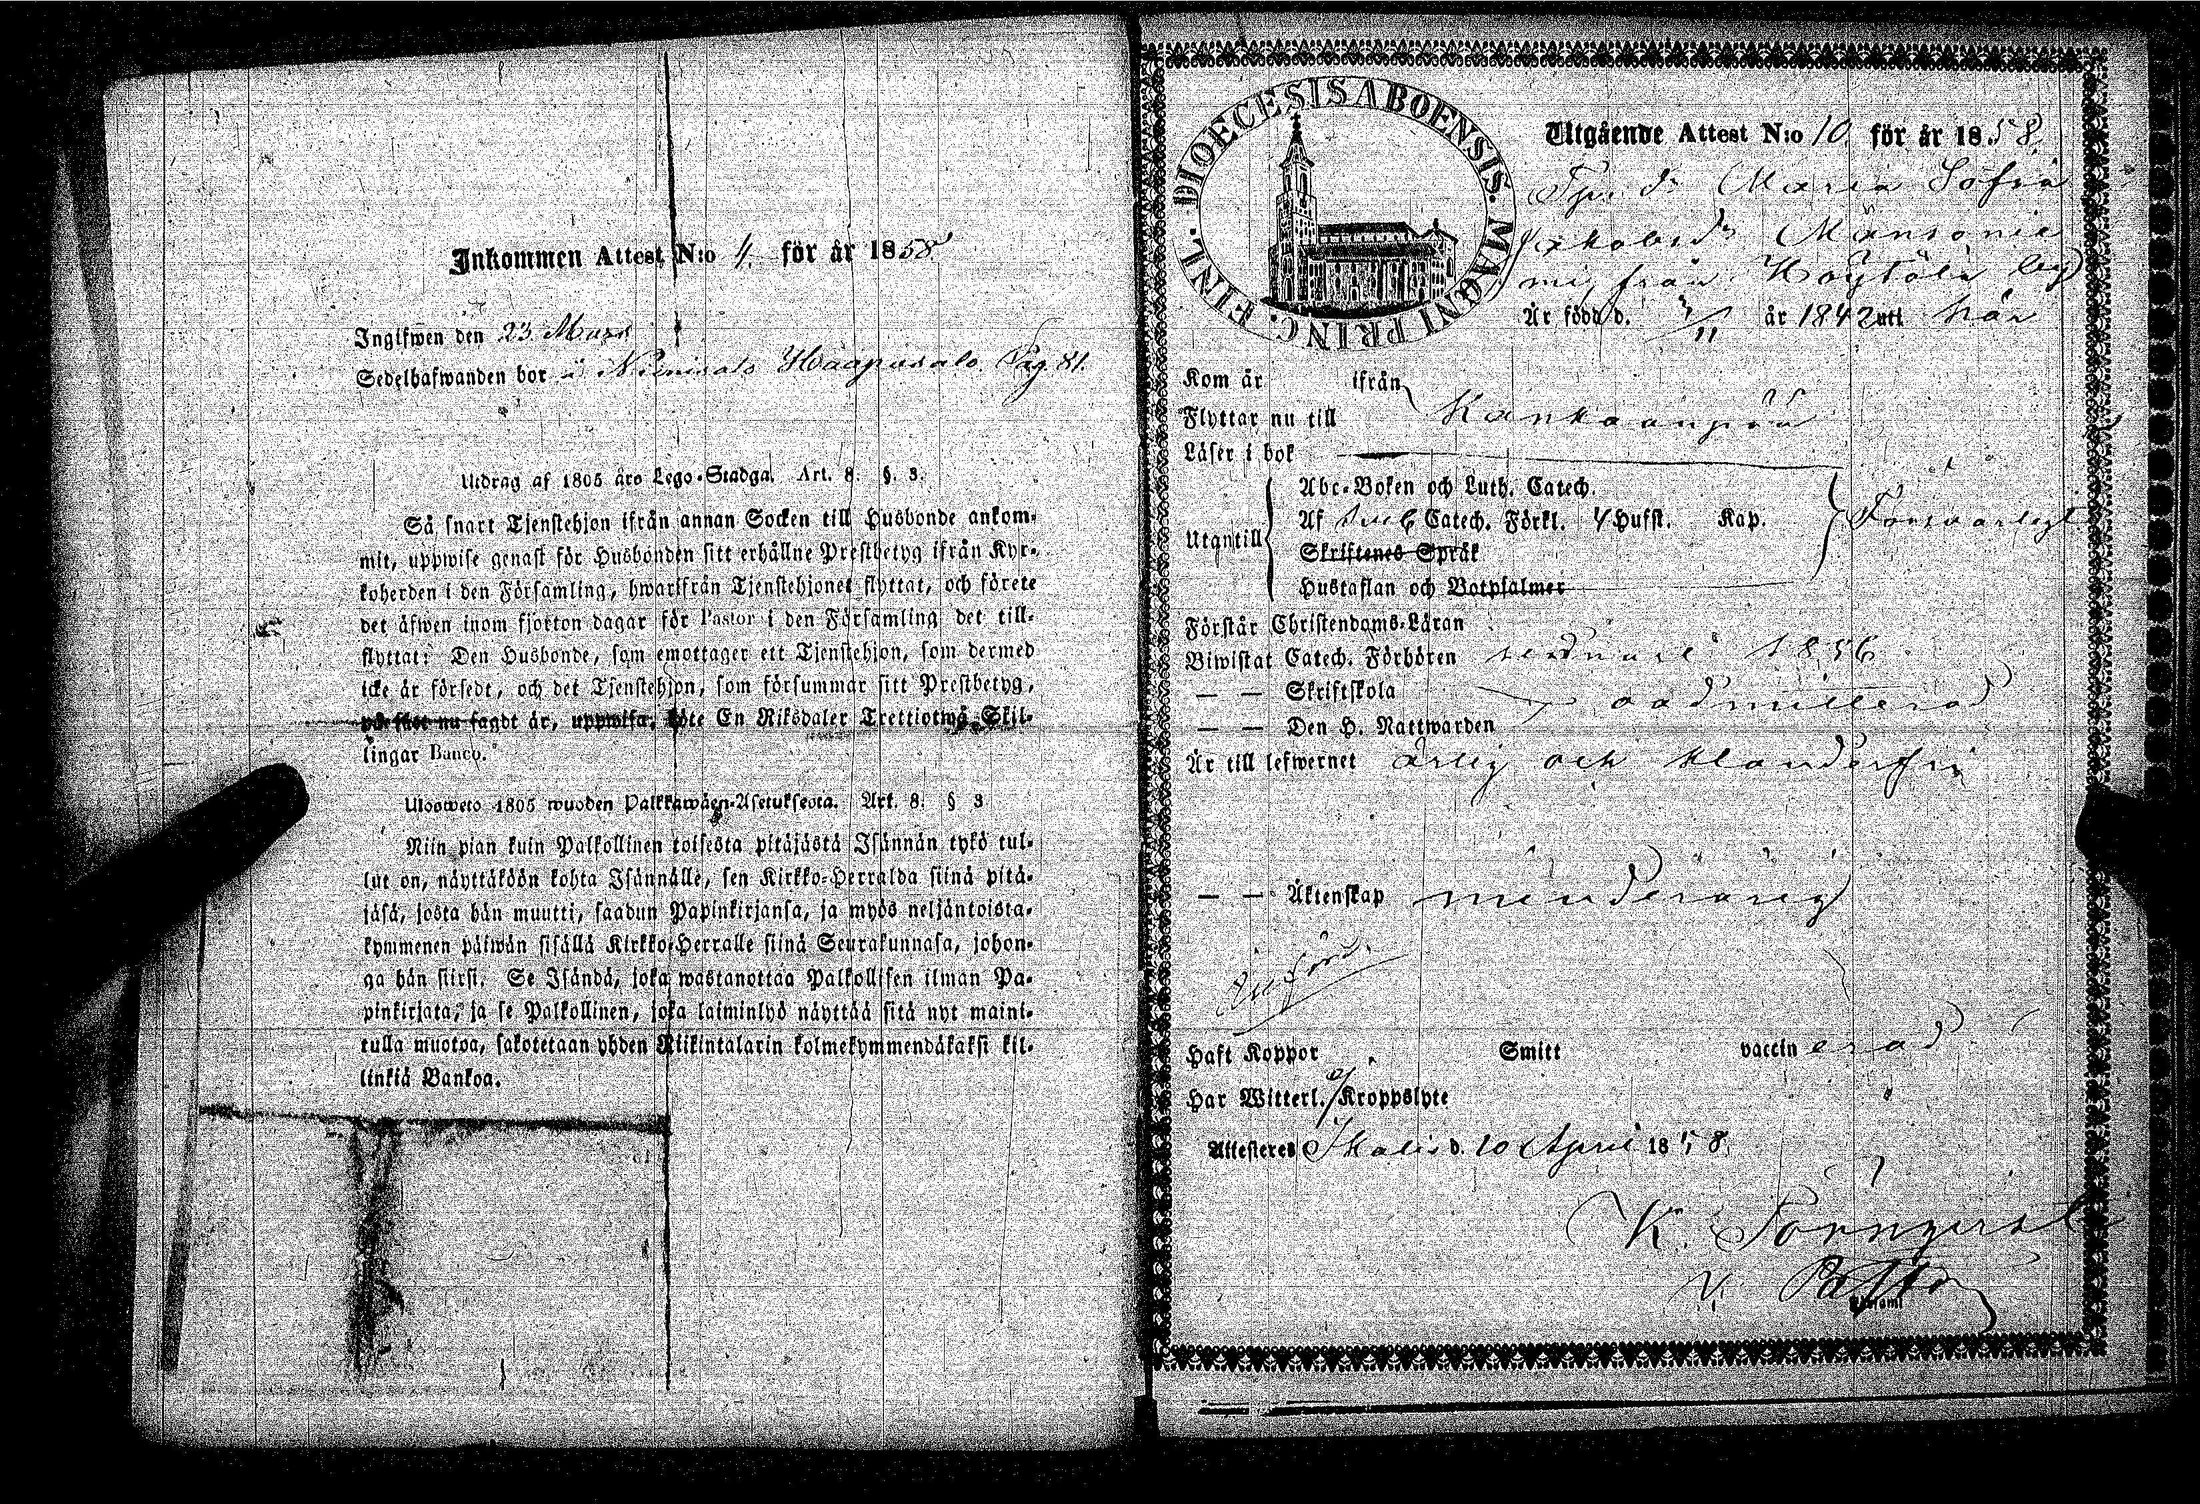 Inkommen Attest N:o 4. för år 1858.
Inglfwen den 23 Mars
Sedelhafwanden bor Pag. 81.
Utdrag af 1805 års Lego-Stadga. Art. 8. §. 3.
Så snart Tjenstehjon ifrån annan Socken till Husbonde ankom-
mit, uppwise genast för Husbonden sitt erhållne Prestbetyg ifrån Kyr-
koherden i den Församling, hwarifrån Tjenstehjonet flyttat, och förete
det äfwen inom fjorton dagar för Pastor i den Församling det till-
flyttat: Den Husbonde, som emottager ett Tjenstehjon, som dermed
icke är försedt, och det Tjenstehjon, som försummar sitt Prestbetyg,
på sätt nu sagdt är, uppwisa, böte En Riksdaler Trettiotwå Skil-
lingar Banco.
Ulosweto 1805 wuoden Palkkawäen-Asetuksesta. Art. 8. § 3
Niin pian kuin Palkollinen toisesta pitäjästä Isännän tykö tul-
lut on, näyttäköön kohta Isännälle, sen Kirkko-Herralda siinä pitä-
jäsä, josta hän muutti, saadun Papinkirjansa, ja myös neljäntoista-
kymmenen päiwän sisällä Kirkko-Herralle siinä Seurakunnasa, johon-
ga hän siirsi. Se Isändä, joka wastanottaa Palkollisen ilman Pa-
pinkirjata, ja se Palkollinen, joka laiminlyö näyttää sitä nyt maini-
tulla muotoa, sakotetaan yhden Riikintalarin kolmekymmendäkaksi kil-
linkiä Bankoa.
DIOECESIS ABOENSIS. MAGNI PRINC. FINL.
Utgående Attest N:o 10. för år 1858.
Maria Sofia
från by
Är född d. /11 år 1842 uti här
Kom år ifrån
Flyttar nu till Kankaanpää
Läser i bok
Utantill
Abc-Boken och Luth. Catech.
Af Catech. Förkl. Husst. Kap.
Försvarligt
Skriftenes Språk
Hustaflan och Botpsalmer
Förstår Christendoms-Läran
Biwistat Catech. Förhören 1856
— — Skriftskola
— — Den H. Nattwarden admitterad
Är till lefwernet ärlig och klanderfri
— — Äktenskap minderårig
Haft Koppor Smitt vaccinerad
Har Witterl. ej Kroppslyte
Attesteres Ikalis d. 10 April 1858.
K. Törnqvist
v. Pastor